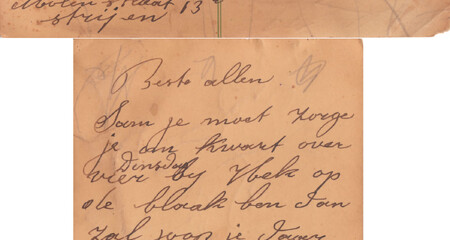 Molenstraat 13
Strijen
Beste allen.
Sam je moet zorge
je om kwart over
Dinsdag
vier by Ybek op
de blaak ben Jan
zal voor je